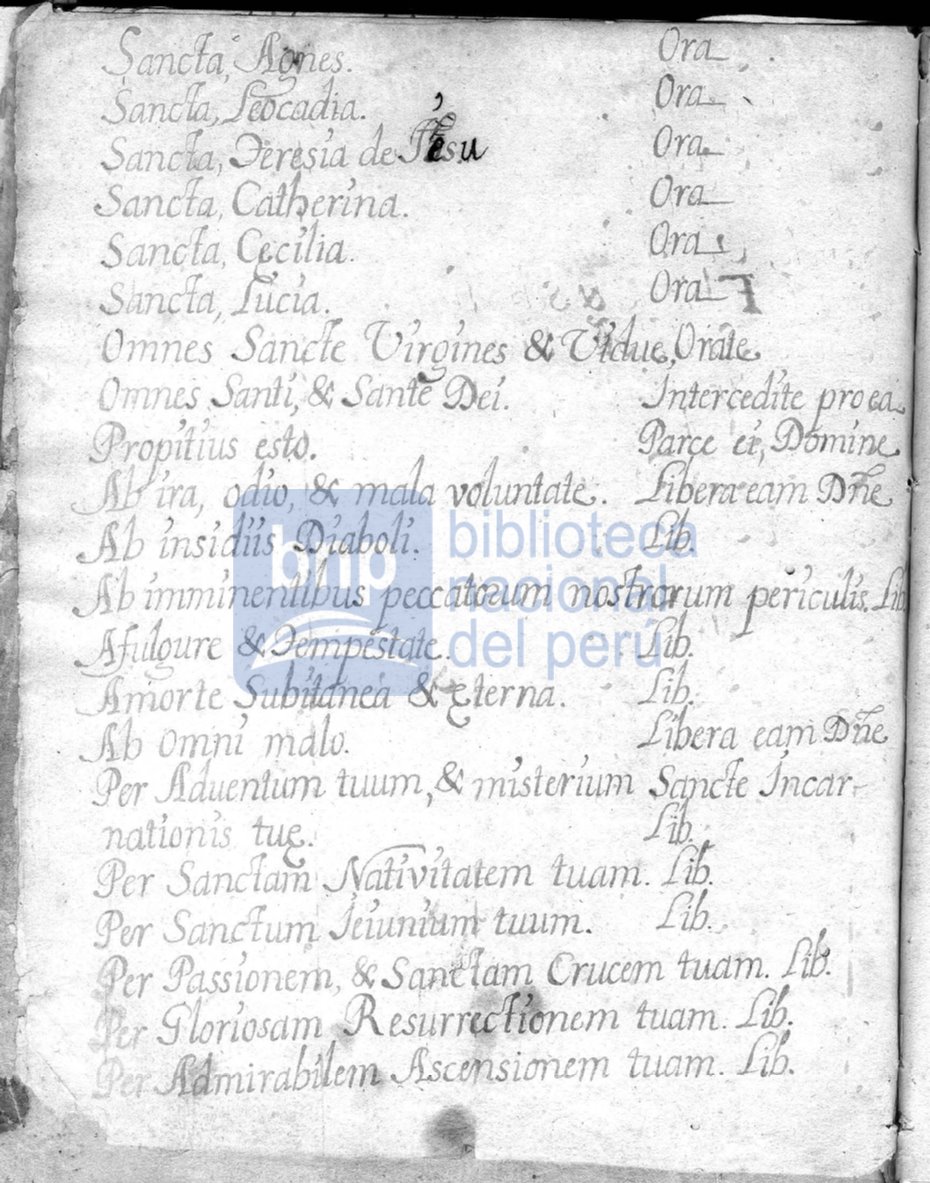 Sancta, Agnes. Ora
Sancta, Leocadia. Ora
Sancta, Teresia de Jhesu Ora
Sancta, Catherina. Ora
Sancta, Cecilia. Ora
Sancta, Lucia. Ora
Omnes Sancte Virgines & Vidue, Orate
Omnes Santi, & Sante Dei. Intercedite pro ea
Propitius esto. Parce ei, Domine
Ab ira, odio, & mala voluntate. Libera eam Dñe
Ab insidiis Diaboli. Lib.
Ab imminentibus peccatorum nostrorum periculis. Lib
Afulgure & Tempestate. Lib.
Amorte Subitanea & Eterna. Lib.
Ab omni malo. Libera eam Dñe
Per Aduentum tuum, & misterium Sancte Incar-
nationis tuę. Lib.
Per Sanctam Nativitatem tuam. Lib.
Per Sanctum Jeiunium tuum. Lib.
Per Passionem, & Sanctam Crucem tuam. Lib.
Per Gloriosam Resurrectionem tuam. Lib.
Per Admirabilem Ascensionem tuam. Lib.
bnp biblioteca
nacional
del perú